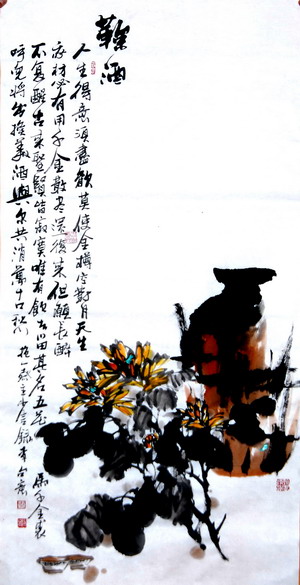 酒
人生得意須盡歡莫使金樽空對月天生
我材必有用千金散盡還復來但願長醉
不复醒古來聖賢皆寂寞唯有飲者留其名五花馬千金裘
呼兒將出換美酒與尔共消萬古愁
錄李白意